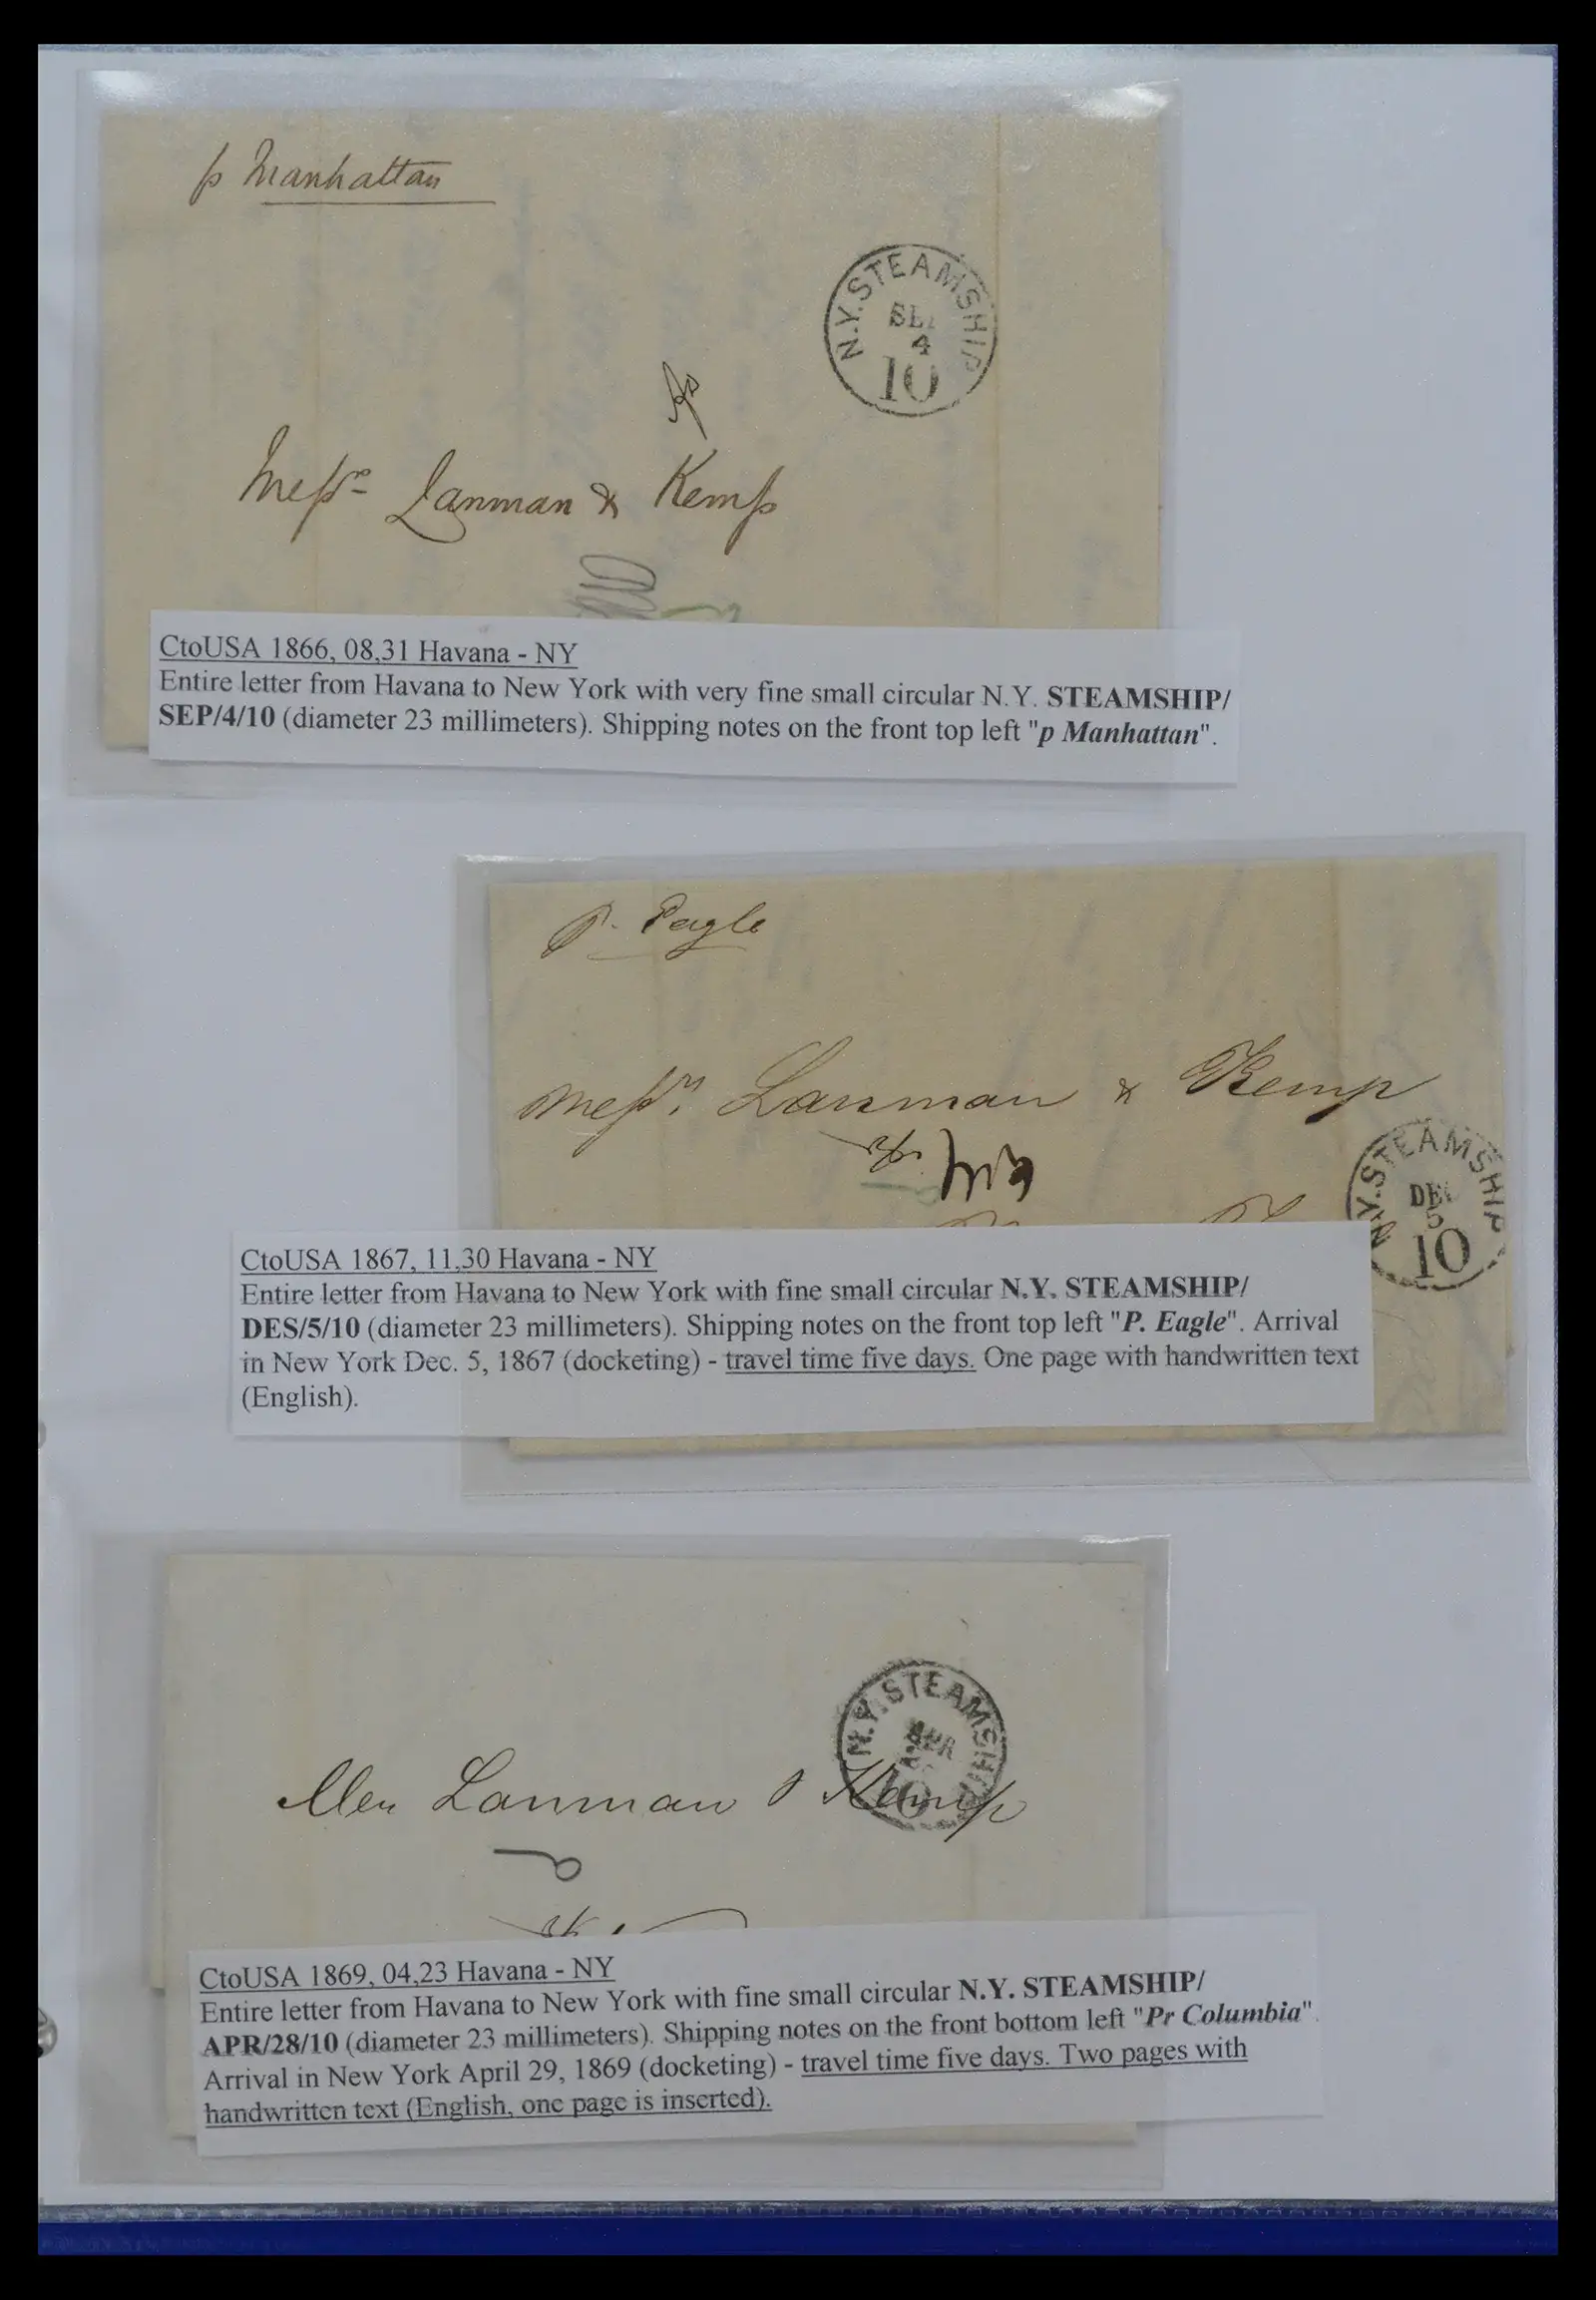 p Manhattan
N.Y. STEAMSHIP
SEP
4
10
Messrs Lanman & Kemp
CtoUSA 1866, 08,31 Havana - NY
Entire letter from Havana to New York with very fine small circular N.Y. STEAMSHIP/
SEP/4/10 (diameter 23 millimeters). Shipping notes on the front top left "p Manhattan".
P. Eagle
Messrs. Lanman & Kemp
N.Y. STEAMSHIP
DEC
5
10
CtoUSA 1867, 11,30 Havana - NY
Entire letter from Havana to New York with fine small circular N.Y. STEAMSHIP/
DES/5/10 (diameter 23 millimeters). Shipping notes on the front top left "P. Eagle". Arrival
in New York Dec. 5, 1867 (docketing) - travel time five days. One page with handwritten text
(English).
N.Y. STEAMSHIP
APR
10
Lanman & Kemp
CtoUSA 1869, 04,23 Havana - NY
Entire letter from Havana to New York with fine small circular N.Y. STEAMSHIP/
APR/28/10 (diameter 23 millimeters). Shipping notes on the front bottom left "Pr Columbia".
Arrival in New York April 29, 1869 (docketing) - travel time five days. Two pages with
handwritten text (English, one page is inserted).